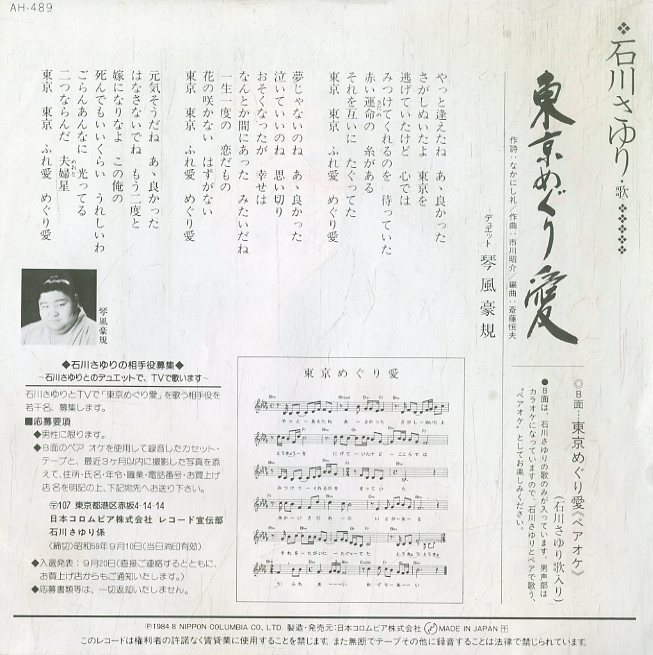 AH-489
❖石川さゆり・歌❖❖❖❖❖❖
東京めぐり愛
作詩:なかにし礼/作曲:市川昭介/編曲:斎藤恒夫
デュエット 琴風豪規
やっと逢えたね あゝ良かった
さがしぬいたよ 東京を
逃げていたけど 心では
みつけてくれるのを 待っていた
赤い運命の 糸がある
それを互いに たぐってた
東京 東京 ふれ愛 めぐり愛
夢じゃないのね あゝ良かった
泣いていいのね 思い切り
おそくなったが 幸せは
なんとか間にあった みたいだね
一生一度の 恋だもの
花の咲かない はずがない
東京 東京 ふれ愛 めぐり愛
元気そうだね あゝ良かった
はなさないでね もう二度と
嫁になりなよ この俺の
死んでもいいくらい うれしいわ
ごらんあんなに 光ってる
二つならんだ 夫婦星
東京 東京 ふれ愛 めぐり愛
琴風豪規
◎B面…東京めぐり愛《ペアオケ》
(石川さゆり歌入り)
●B面は、石川さゆりの歌のみが入っています。男声部は
カラオケになっていますので、石川さゆりとペアで歌う、
“ペアオケ”としてお楽しみください。
◆石川さゆりの相手役募集◆
〜石川さゆりとのデュエットで、TVで歌います〜
石川さゆりとTVで「東京めぐり愛」を歌う相手役を
若干名、募集します。
■応募要項
◆男性に限ります。
◆B面のペアオケを使用して録音したカセット・
テープと、最近3ヶ月以内に撮影した写真を添
えて、住所・氏名・年令・職業・電話番号・お買上げ
店名を明記の上、下記宛先へお送り下さい。
〒107 東京都港区赤坂4-14-14
日本コロムビア株式会社 レコード宣伝部
石川さゆり係
〈締切〉昭和59年9月10日(当日消印有効)
◆入選発表:9月20日(直接ご連絡するとともに、
お買上げ店からもご通知いたします。)
◆応募書類等は、一切返却いたしません。
東京めぐり愛
Ⓟ1984.8 NIPPON COLUMBIA CO., LTD. 製造・発売元:日本コロムビア株式会社 MADE IN JAPAN
このレコードは権利者の許諾なく賃貸業に使用することを禁じます。また無断でテープその他に録音することは法律で禁じられています。